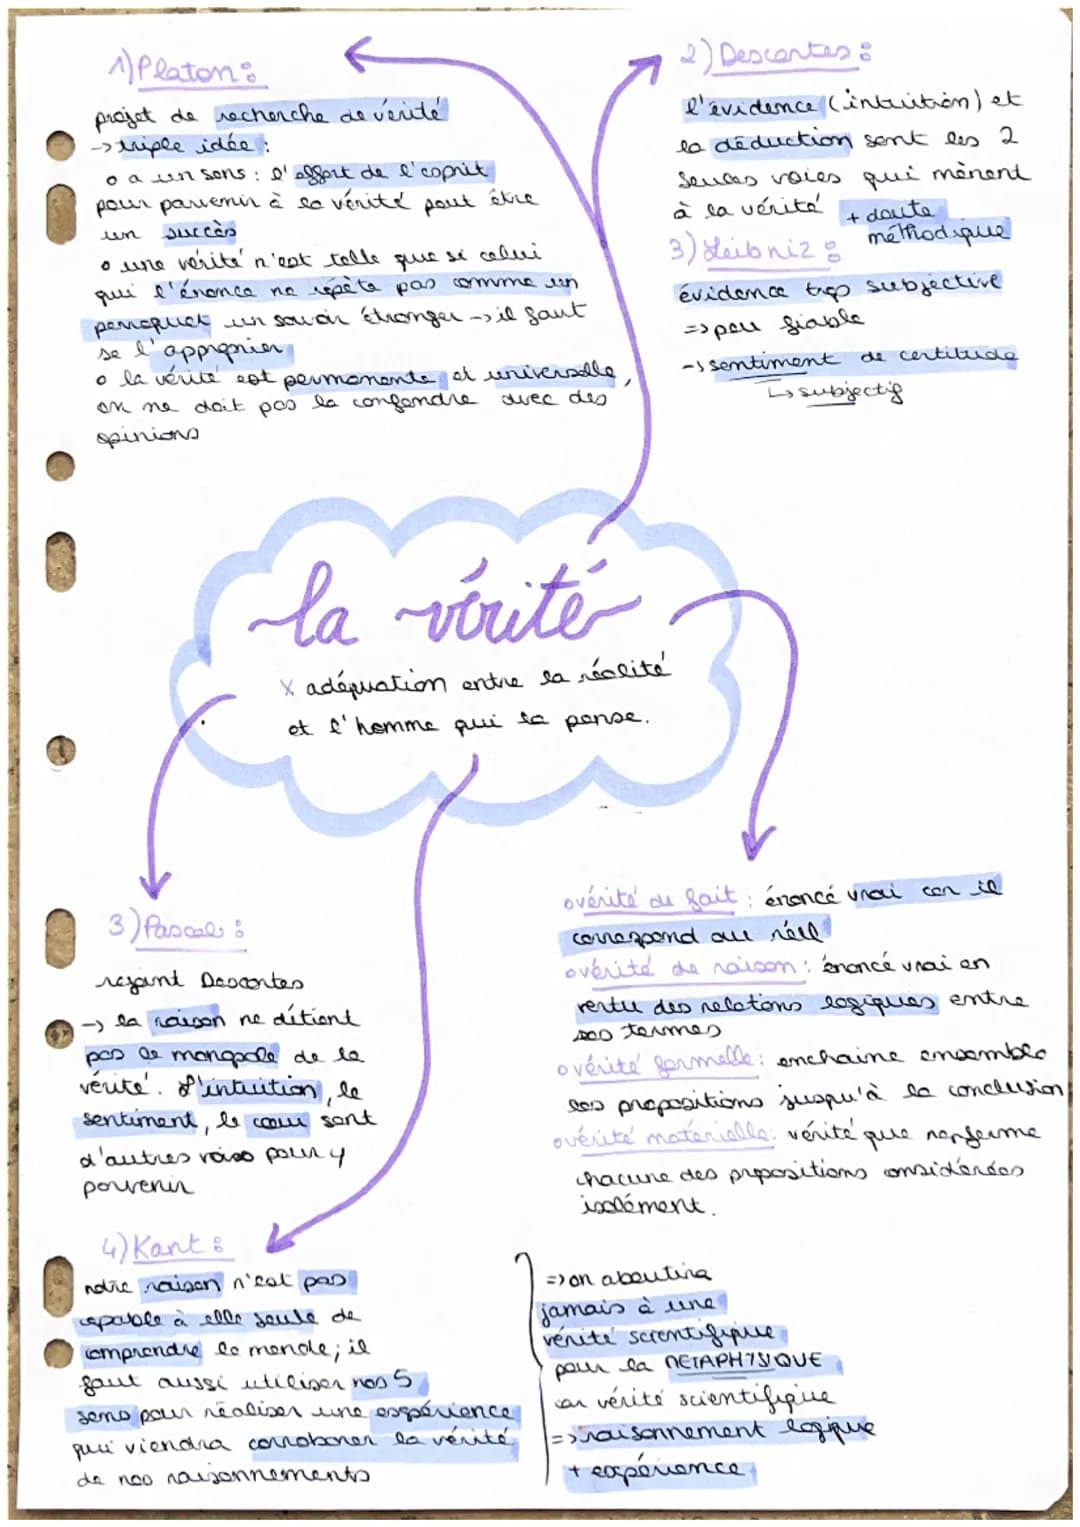 1) Platon :
projet de recherche de vérité
-> triple idée :
o a un sens : l'effort de l'esprit
pour parvenir à la vérité peut être
un succès
o une vérité n'est telle que si celui
qui l'énonce ne répète pas comme un
perroquet un savoir étranger -> il faut
se l'approprier
o la vérité est permanente et universelle,
on ne doit pas la confondre avec des
opinions
2) Descartes :
l'évidence (intuition) et
la déduction sont les 2
seules voies qui mènent
à la vérité + doute
méthodique
3) Leibniz :
évidence trop subjective
=> peu fiable
-> sentiment de certitude
↳ subjectif
la vérité
x adéquation entre la réalité
et l'homme qui la pense.
3) Pascal :
rejoint Descartes
-> la raison ne détient
pas le monopole de la
vérité. L'intuition, le
sentiment, le coeur sont
d'autres voies pour y
parvenir
o vérité de fait : énoncé vrai car il
correspond au réel
o vérité de raison : énoncé vrai en
vertu des relations logiques entre
ses termes
o vérité formelle : enchaine ensemble
les propositions jusqu'à la conclusion
o vérité matérielle : vérité que renferme
chacune des propositions considérées
isolément.
4) Kant :
notre raison n'est pas
capable à elle seule de
comprendre le monde ; il
faut aussi utiliser nos 5
sens pour réaliser une expérience
qui viendra corroborer la vérité
de nos raisonnements
=> on aboutira
jamais à une
vérité scientifique
pour la METAPHYSIQUE
car vérité scientifique
=> raisonnement logique
+ expérience